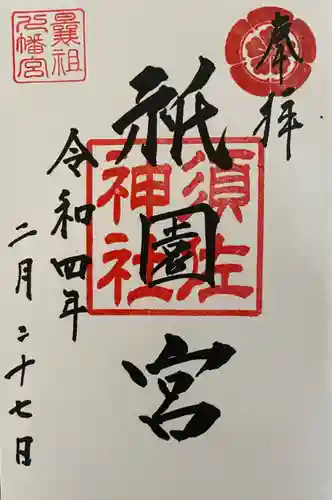 奉拝
須佐
神社
祇園宮
曩祖
八幡宮
令和四年
二月二十七日